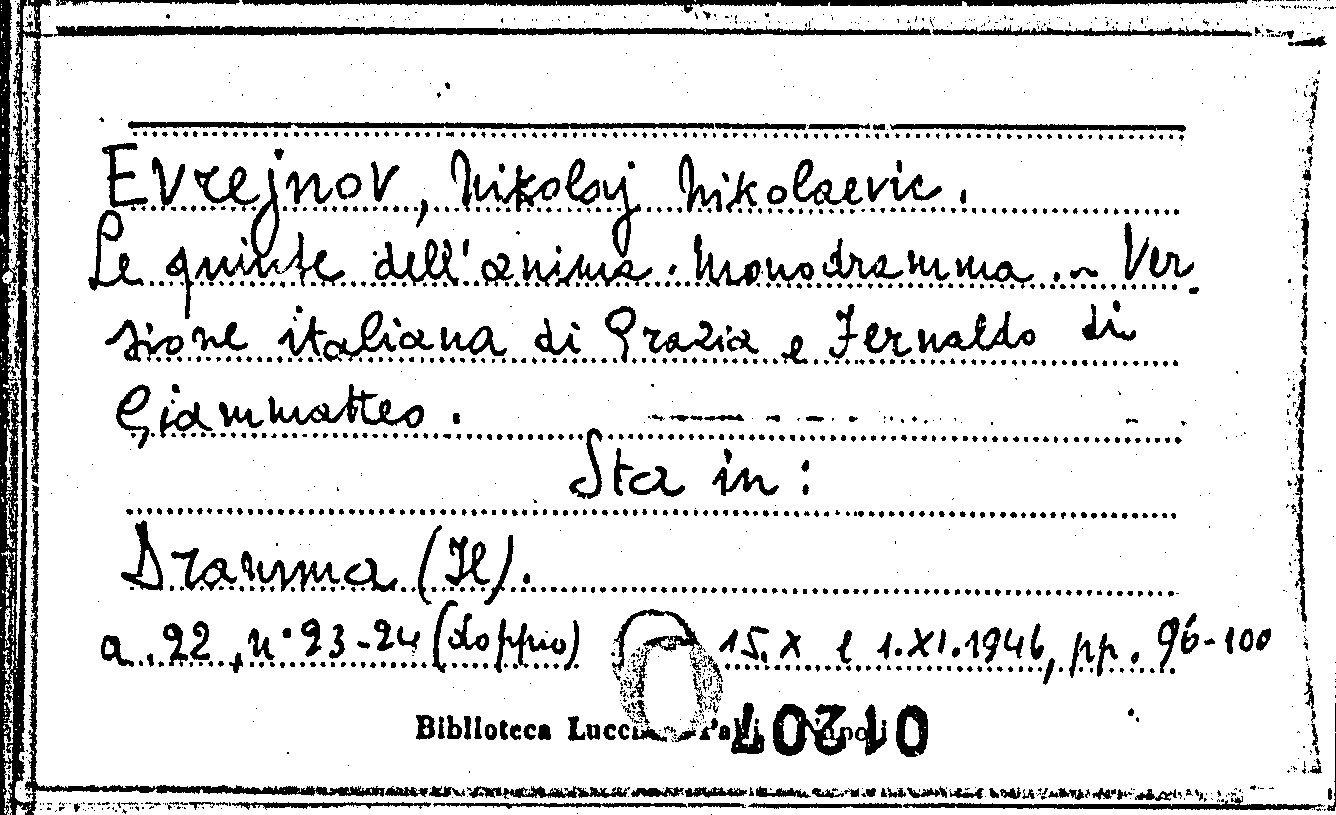 Evrejnov, Nikolaj Nikolaevic.
Le quinte dell'anima. Monodramma. - Ver
sione italiana di Grazia e Fernaldo di
Giammatteo.
Sta in:
Dramma (Il).
a. 22, n° 23-24 (doppio) 15.X e 1.XI.1946, pp. 96-100
Biblioteca